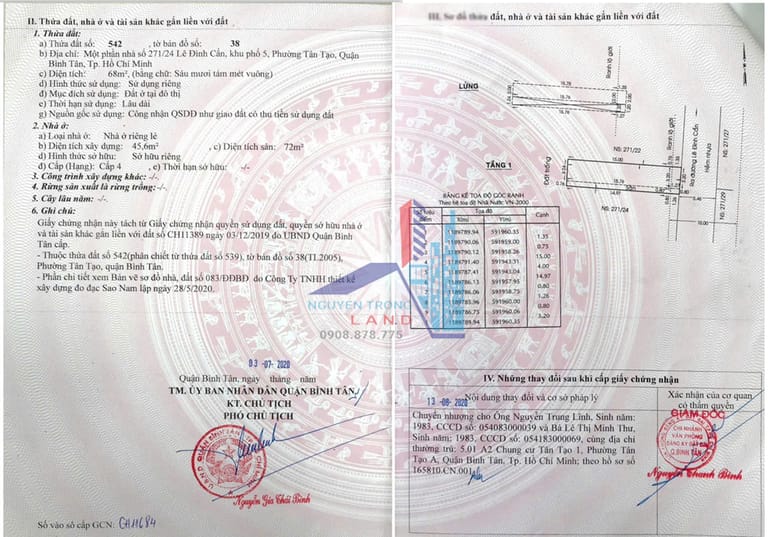 II. Thửa đất, nhà ở và tài sản khác gắn liền với đất
1. Thửa đất:
a) Thửa đất số: 542 , tờ bản đồ số: 38
b) Địa chỉ: Một phần nhà số 271/24 Lê Đình Cẩn, khu phố 5, Phường Tân Tạo, Quận
Bình Tân, Tp. Hồ Chí Minh
c) Diện tích: 68m², (bằng chữ: Sáu mươi tám mét vuông)
d) Hình thức sử dụng: Sử dụng riêng
đ) Mục đích sử dụng: Đất ở tại đô thị
e) Thời hạn sử dụng: Lâu dài
g) Nguồn gốc sử dụng: Công nhận QSDĐ như giao đất có thu tiền sử dụng đất
2. Nhà ở:
a) Loại nhà ở: Nhà ở riêng lẻ
b) Diện tích xây dựng: 45,6m², c) Diện tích sàn: 72m²
d) Hình thức sở hữu: Sở hữu riêng
đ) Cấp (Hạng): Cấp 4 , e) Thời hạn sở hữu: -/-
3. Công trình xây dựng khác: -/-
4. Rừng sản xuất là rừng trồng: -/-
5. Cây lâu năm: -/-
6. Ghi chú:
Giấy chứng nhận này tách từ Giấy chứng nhận quyền sử dụng đất, quyền sở hữu nhà ở
và tài sản khác gắn liền với đất số CH11389 ngày 03/12/2019 do UBND Quận Bình
Tân cấp.
- Thuộc thửa đất số 542(phân chiết từ thửa đất số 539), tờ bản đồ số 38(TL2005),
Phường Tân Tạo, quận Bình Tân.
- Phần chi tiết xem Bản vẽ sơ đồ nhà, đất số 083/ĐĐBD do Công Ty TNHH thiết kế
xây dựng đo đạc Sao Nam lập ngày 28/5/2020.
03 -07- 2020
Quận Bình Tân, ngày tháng năm
TM. ỦY BAN NHÂN DÂN QUẬN BÌNH TÂN
KT. CHỦ TỊCH
PHÓ CHỦ TỊCH
Nguyễn Gia Thái Bình
Số vào sổ cấp GCN: CH11684
NGUYEN TRONG
LAND
0908.878.775
III. Sơ đồ thửa đất, nhà ở và tài sản khác gắn liền với đất
LỬNG
Ranh lộ giới
TẦNG 1
NS: 271/22
Ranh lộ giới
Ra đường Lê Đình Cẩn
hẻm nhựa
Đất trống
15.00
NS: 271/24
NS: 271/29
BẢNG KÊ TỌA ĐỘ GÓC RANH
Theo hệ tọa độ Nhà Nước VN-2000
Số hiệu điểm Tọa độ Cạnh
X(m) Y(m)
1189789.94 591960.35
1.35
1189790.06 591959.00
0.75
1189790.12 591958.26
15.00
4 1189791.40 591943.31
4.00
1189787.41 591943.04
14.97
1189786.13 591957.95
0.80
1189786.06 591958.75
1.26
1189785.96 591960.00
0.80
1189786.75 591960.06
3.20
1189789.94 591960.35
IV. Những thay đổi sau khi cấp giấy chứng nhận
13 -08- 2020
Nội dung thay đổi và cơ sở pháp lý
Xác nhận của cơ quan
có thẩm quyền
Chuyển nhượng cho Ông Nguyễn Trung Lĩnh, Sinh năm:
1983, CCCD số: 054083000039 và Bà Lê Thị Minh Thư,
Sinh năm: 1983, CCCD số: 054183000069, cùng địa chỉ
thường trú: 5.01 A2 Chung cư Tân Tạo 1, Phường Tân
Tạo A, Quận Bình Tân, Tp. Hồ Chí Minh; theo hồ sơ số
165810.CN.001
GIÁM ĐỐC
CHI NHÁNH
VĂN PHÒNG
ĐĂNG KÝ ĐẤT ĐAI
Q.BÌNH TÂN
Nguyễn Thanh Bình